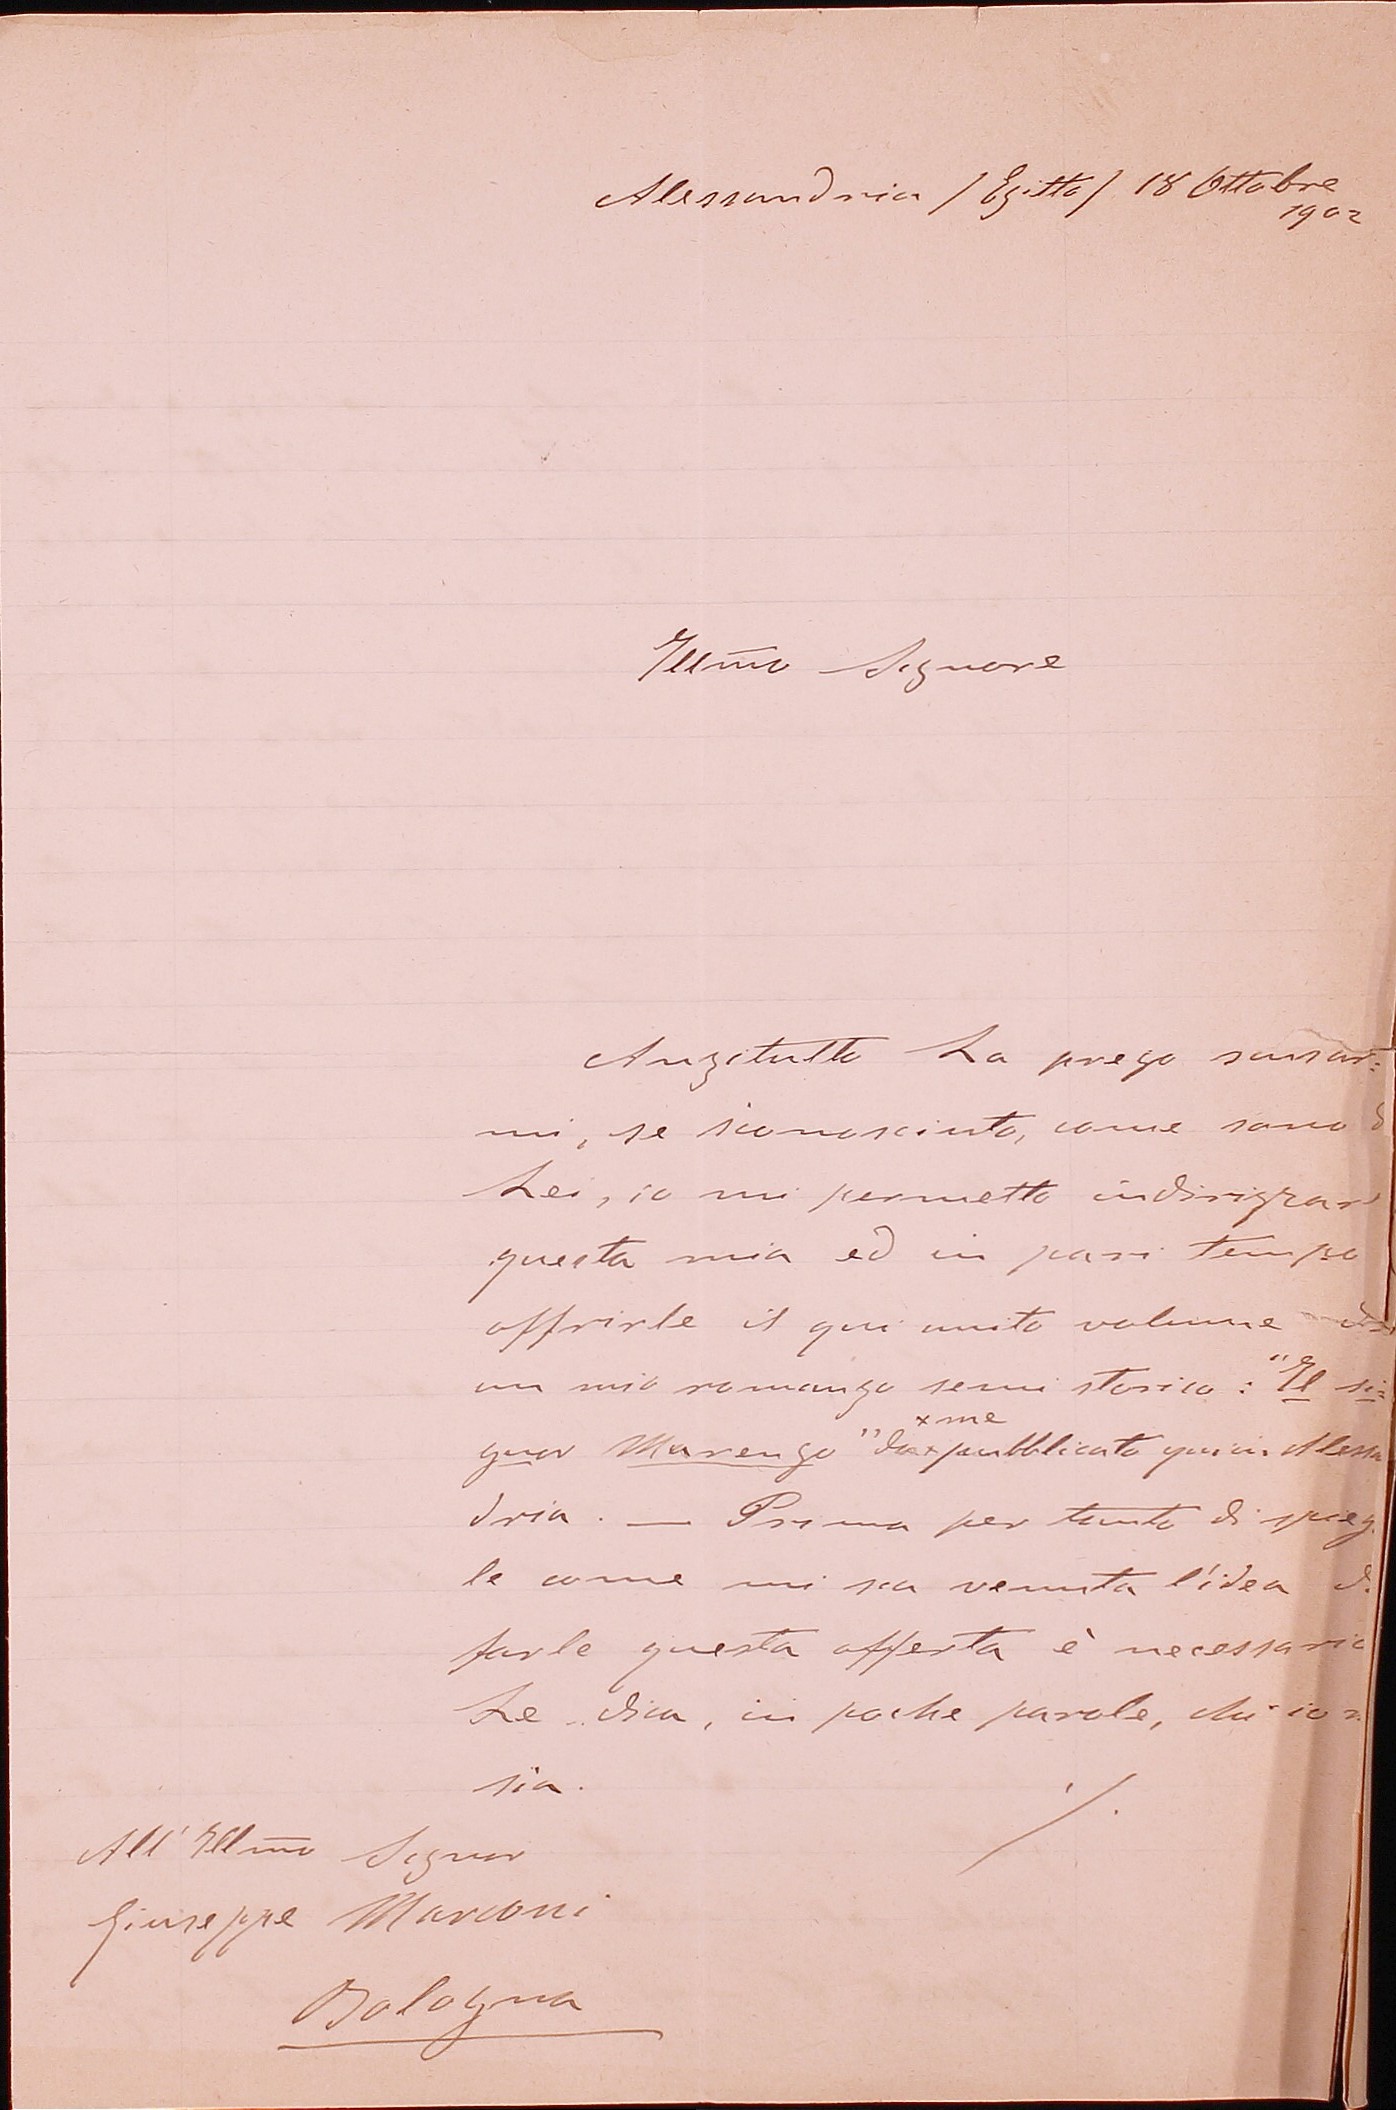 Alessandria / Egitto / 18 Ottobre
1902
Illmo Signore
Anzitutto La prego scusar=
mi, se sconosciuto, come sono
Lei, io mi permetto indirizzar
questa mia ed in pari tempo
offrirle il qui unito volume
un mio romanzo semi storico: "Il si=
x me
gnor Marengo" da x pubblicato qui in Alessa
dria. — Prima per tanto di spieg
le come mi sia venuta l'idea d
farle questa offerta è necessario
Le dica, in poche parole, chi io
sia.
./.
All' Illmo Signor
Giuseppe Marconi
Bologna